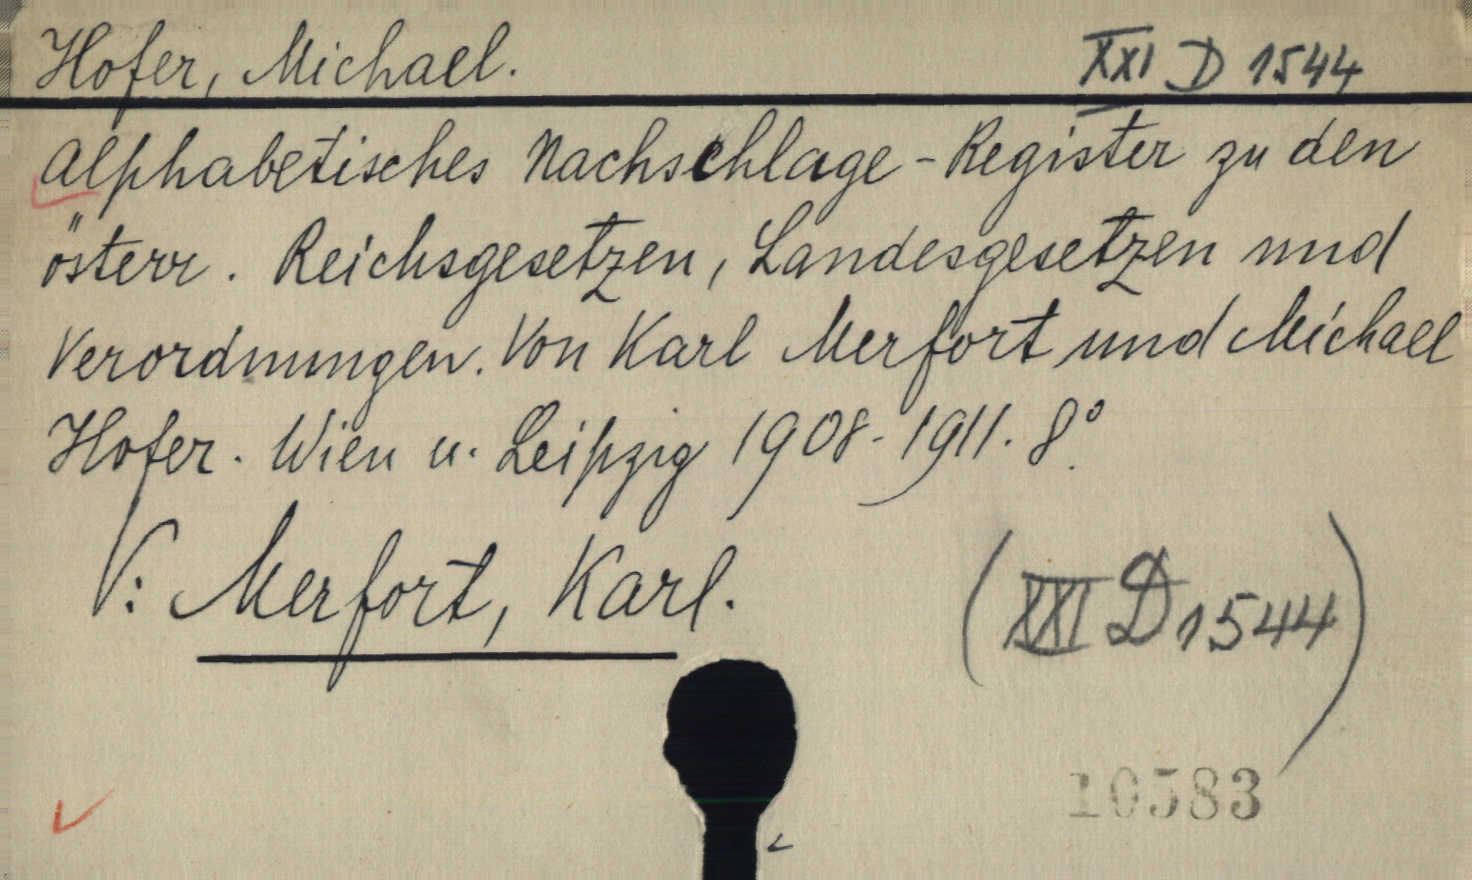 Hofer, Michael.
XXI D 1544
Alphabetisches Nachschlage-Register zu den
österr. Reichsgesetzen, Landesgesetzen und
Verordnungen. Von Karl Merfort und Michael
Hofer. Wien u. Leipzig 1908-1911. 8°.
V: Merfort, Karl.
(XXI D 1544)
10583